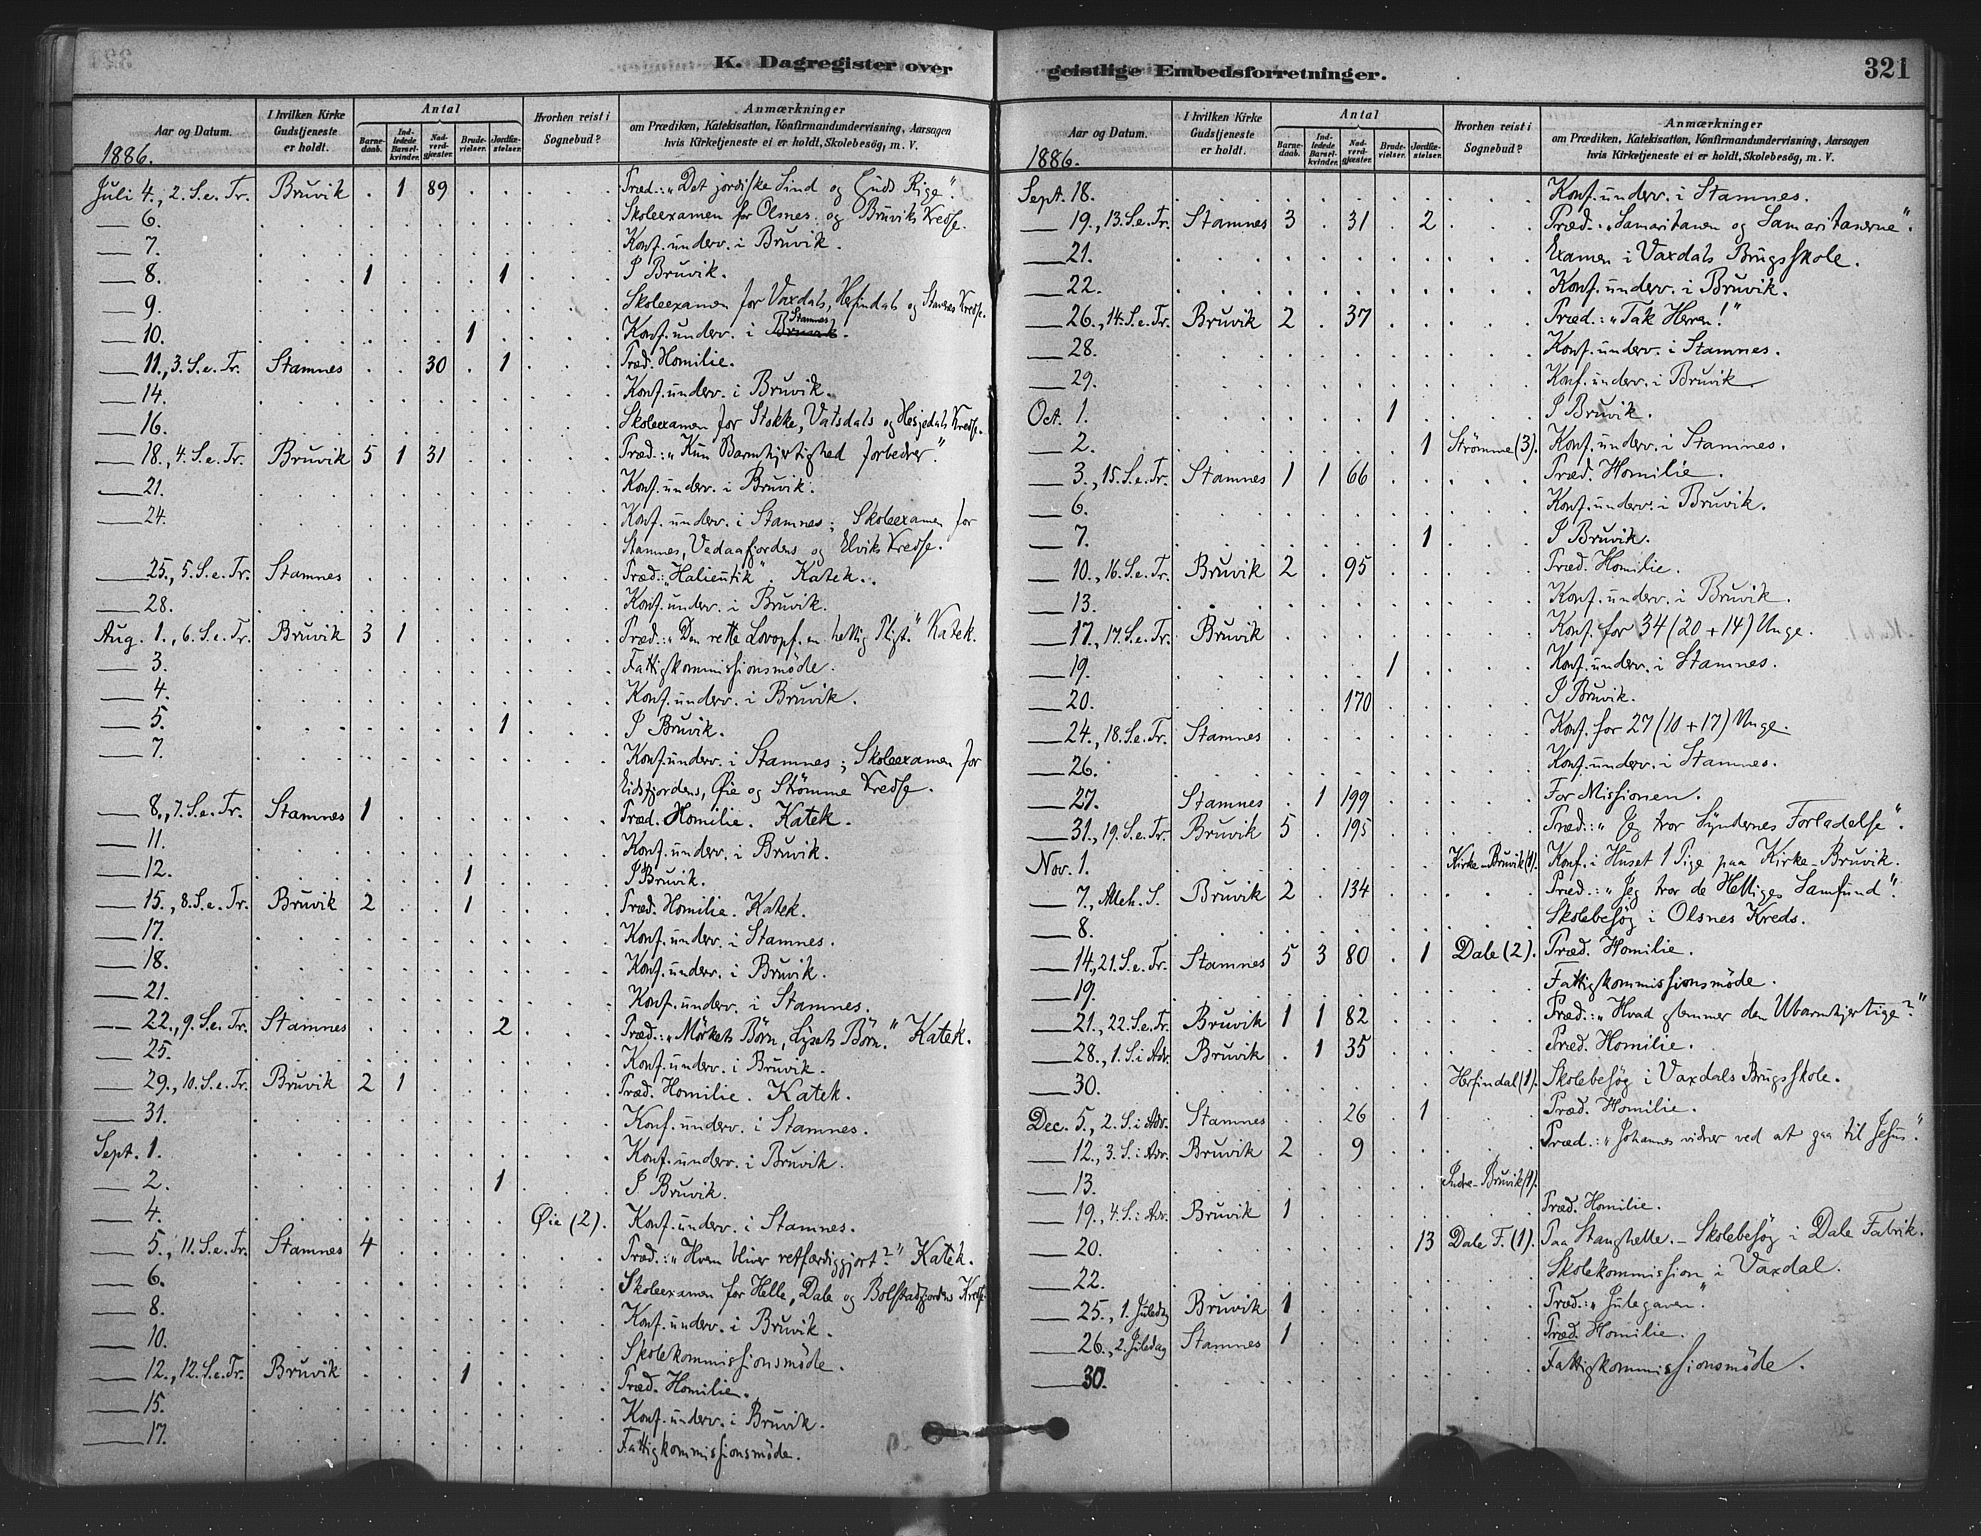 K. Dagregister over
Aar og Datum.
I hvilken Kirke Gudstjeneste er holdt.
Antal
Barnedaab.
Indledede Barselkvinder.
Nadverdgjæster.
Brudevielser.
Jordfæstelser.
Hvorhen reist i Sognebud?
Anmærkninger
om Prædiken, Katekisation, Konfirmandundervisning, Aarsagen
hvis Kirketjeneste ei er holdt, Skolebesøg, m. V.
1886.
Juli 4., 2. S. e. Tr. Bruvik . 1 89 . . Præd.: „Det jordiske Sind og Guds Rige".
6. Skoleexamen for Olsnes og Bruviks Kredse.
7. Konf. underv. i Bruvik.
8. 1 . . . 1 I Bruvik.
9. Skoleexamen for Vaxdals, Herfindals og Stanes Kredse.
10. . . . 1 . Konf. underv. i Stamnes.
11., 3. S. e. Tr. Stamnes . . 30 . 1 Præd. Homilie.
14. Konf. underv. i Bruvik.
16. Skoleexamen for Stokke, Vatsdals og Hesjedals Kredse.
18., 4. S. e. Tr. Bruvik 5 1 31 . . Præd.: „Kun Barmhjertighed forbedrer".
21. Konf. underv. i Bruvik.
24. Konf. underv. i Stamnes; Skoleexamen for
Stamnes, Vedaafjordens og Elviks Kredse.
25., 5. S. e. Tr. Stamnes Præd.: „Halieutik". Katek.
28. Konf. underv. i Bruvik.
Aug. 1., 6. S. e. Tr. Bruvik 3 1 . . . Præd.: „Den rette Lovopf. en hellig Pligt." Katek.
3. Fattigkommissionsmøde.
4. Konf. underv. i Bruvik.
5. . . . . 1 I Bruvik.
7. Konf. underv. i Stamnes; Skoleexamen for
Eidsfjordens, Øie og Strømme Kredse.
8., 7. S. e. Tr. Stamnes 1 . . . . Præd. Homilie. Katek.
11. Konf. underv. i Bruvik.
12. . . . 1 . I Bruvik.
15., 8. S. e. Tr. Bruvik 2 . . 1 . Præd. Homilie. Katek.
17. Konf. underv. i Stamnes.
18. Konf. underv. i Bruvik.
21. Konf. underv. i Stamnes.
22., 9. S. e. Tr. Stamnes . . . . 2 Præd.: „Mørkets Børn, Lysets Børn." Katek.
25. Konf. underv. i Bruvik.
29., 10. S. e. Tr. Bruvik 2 1 . . . Præd. Homilie. Katek.
31. Konf. underv. i Stamnes.
Sept. 1. Konf. underv. i Bruvik.
2. . . . . 1 I Bruvik.
4. Øie (2). Konf. underv. i Stamnes.
5., 11. S. e. Tr. Stamnes 4 . . . . Præd.: „Hvem bliver retfærdiggjort?" Katek.
6. Skoleexamen for Helle, Dale og Bolstadfjordens Kredse.
8. Konf. underv. i Bruvik.
10. Skolekommissionsmøde.
12., 12. S. e. Tr. Bruvik . . . 1 . Præd. Homilie.
15. Konf. underv. i Bruvik.
17. Fattigkommissionsmøde.
geistlige Embedsforretninger.
321
Aar og Datum.
I hvilken Kirke Gudstjeneste er holdt.
Antal
Barnedaab.
Indledede Barselkvinder.
Nadverdgjæster.
Brudevielser.
Jordfæstelser.
Hvorhen reist i Sognebud?
Anmærkninger
om Prædiken, Katekisation, Konfirmandundervisning, Aarsagen
hvis Kirketjeneste ei er holdt, Skolebesøg, m. V.
1886.
Sept. 18. Konf. underv. i Stamnes.
19., 13. S. e. Tr. Stamnes 3 . 31 . 2 Præd.: „Samaritanen og Samaritanerne".
21. Examen i Vaxdals Brugsskole.
22. Konf. underv. i Bruvik.
26., 14. S. e. Tr. Bruvik 2 . 37 . . Præd.: „Tak Herren!"
28. Konf. underv. i Stamnes.
29. Konf. underv. i Bruvik
Oct. 1. . . . 1 . I Bruvik.
2. . . . . 1 Strømme (3). Konf. underv. i Stamnes.
3., 15. S. e. Tr. Stamnes 1 1 66 . . Præd. Homilie.
6. Konf. underv. i Bruvik.
7. . . . . 1 I Bruvik.
10., 16. S. e. Tr. Bruvik 2 . 95 . . Præd. Homilie.
13. Konf. underv. i Bruvik.
17., 17. S. e. Tr. Bruvik Konf. for 34 (20 + 14) Unge.
19. . . . 1 . Konf. underv. i Stamnes.
20. . . 170 . . I Bruvik.
24., 18. S. e. Tr. Stamnes Konf. for 27 (10 + 17) Unge.
26. Konf. underv. i Stamnes.
27. Stamnes . 1 199 . . For Missionen.
31., 19. S. e. Tr. Bruvik 5 . 195 . . Præd.: „Jeg tror Syndernes Forladelse".
Nov. 1. Kirke-Bruvik (1). Konf. i Huset 1 Pige paa Kirke-Bruvik.
7., Alleh. S. Bruvik 2 . 134 . . Præd.: „Jeg tror de Helliges Samfund".
8. Skolebesøg i Olsnes Kreds.
14., 21. S. e. Tr. Stamnes 5 3 80 . 1 Dale (2). Præd. Homilie.
19. Fattigkommissionsmøde.
21., 22. S. e. Tr. Bruvik 1 1 82 . . Præd.: „Hvad glemmer den Ubarmhjertige?"
28., 1. S. i Adv. Bruvik . 1 35 . . Præd. Homilie.
30. Herfindal (1). Skolebesøg i Vaxdals Brugsskole.
Dec. 5., 2. S. i Adv. Stamnes . . 26 . 1 Præd. Homilie.
12., 3. S. i Adv. Bruvik 2 . 9 . . Præd.: „Johannes vidner ved at gaa til Jesus".
13. Indre-Bruvik (1).
19., 4. S. i Adv. Bruvik 1 . . . . Præd. Homilie.
20. . . . . 13 Dale F. (1). Paa Stanghelle. - Skolebesøg i Dale Fabrik.
22. Skolekommission i Vaxdal.
25., 1. Juledag Bruvik 1 . . . . Præd.: „Julegaven".
26., 2. Juledag Stamnes 1 . . . . Præd. Homilie.
30. Fattigkommissionsmøde.